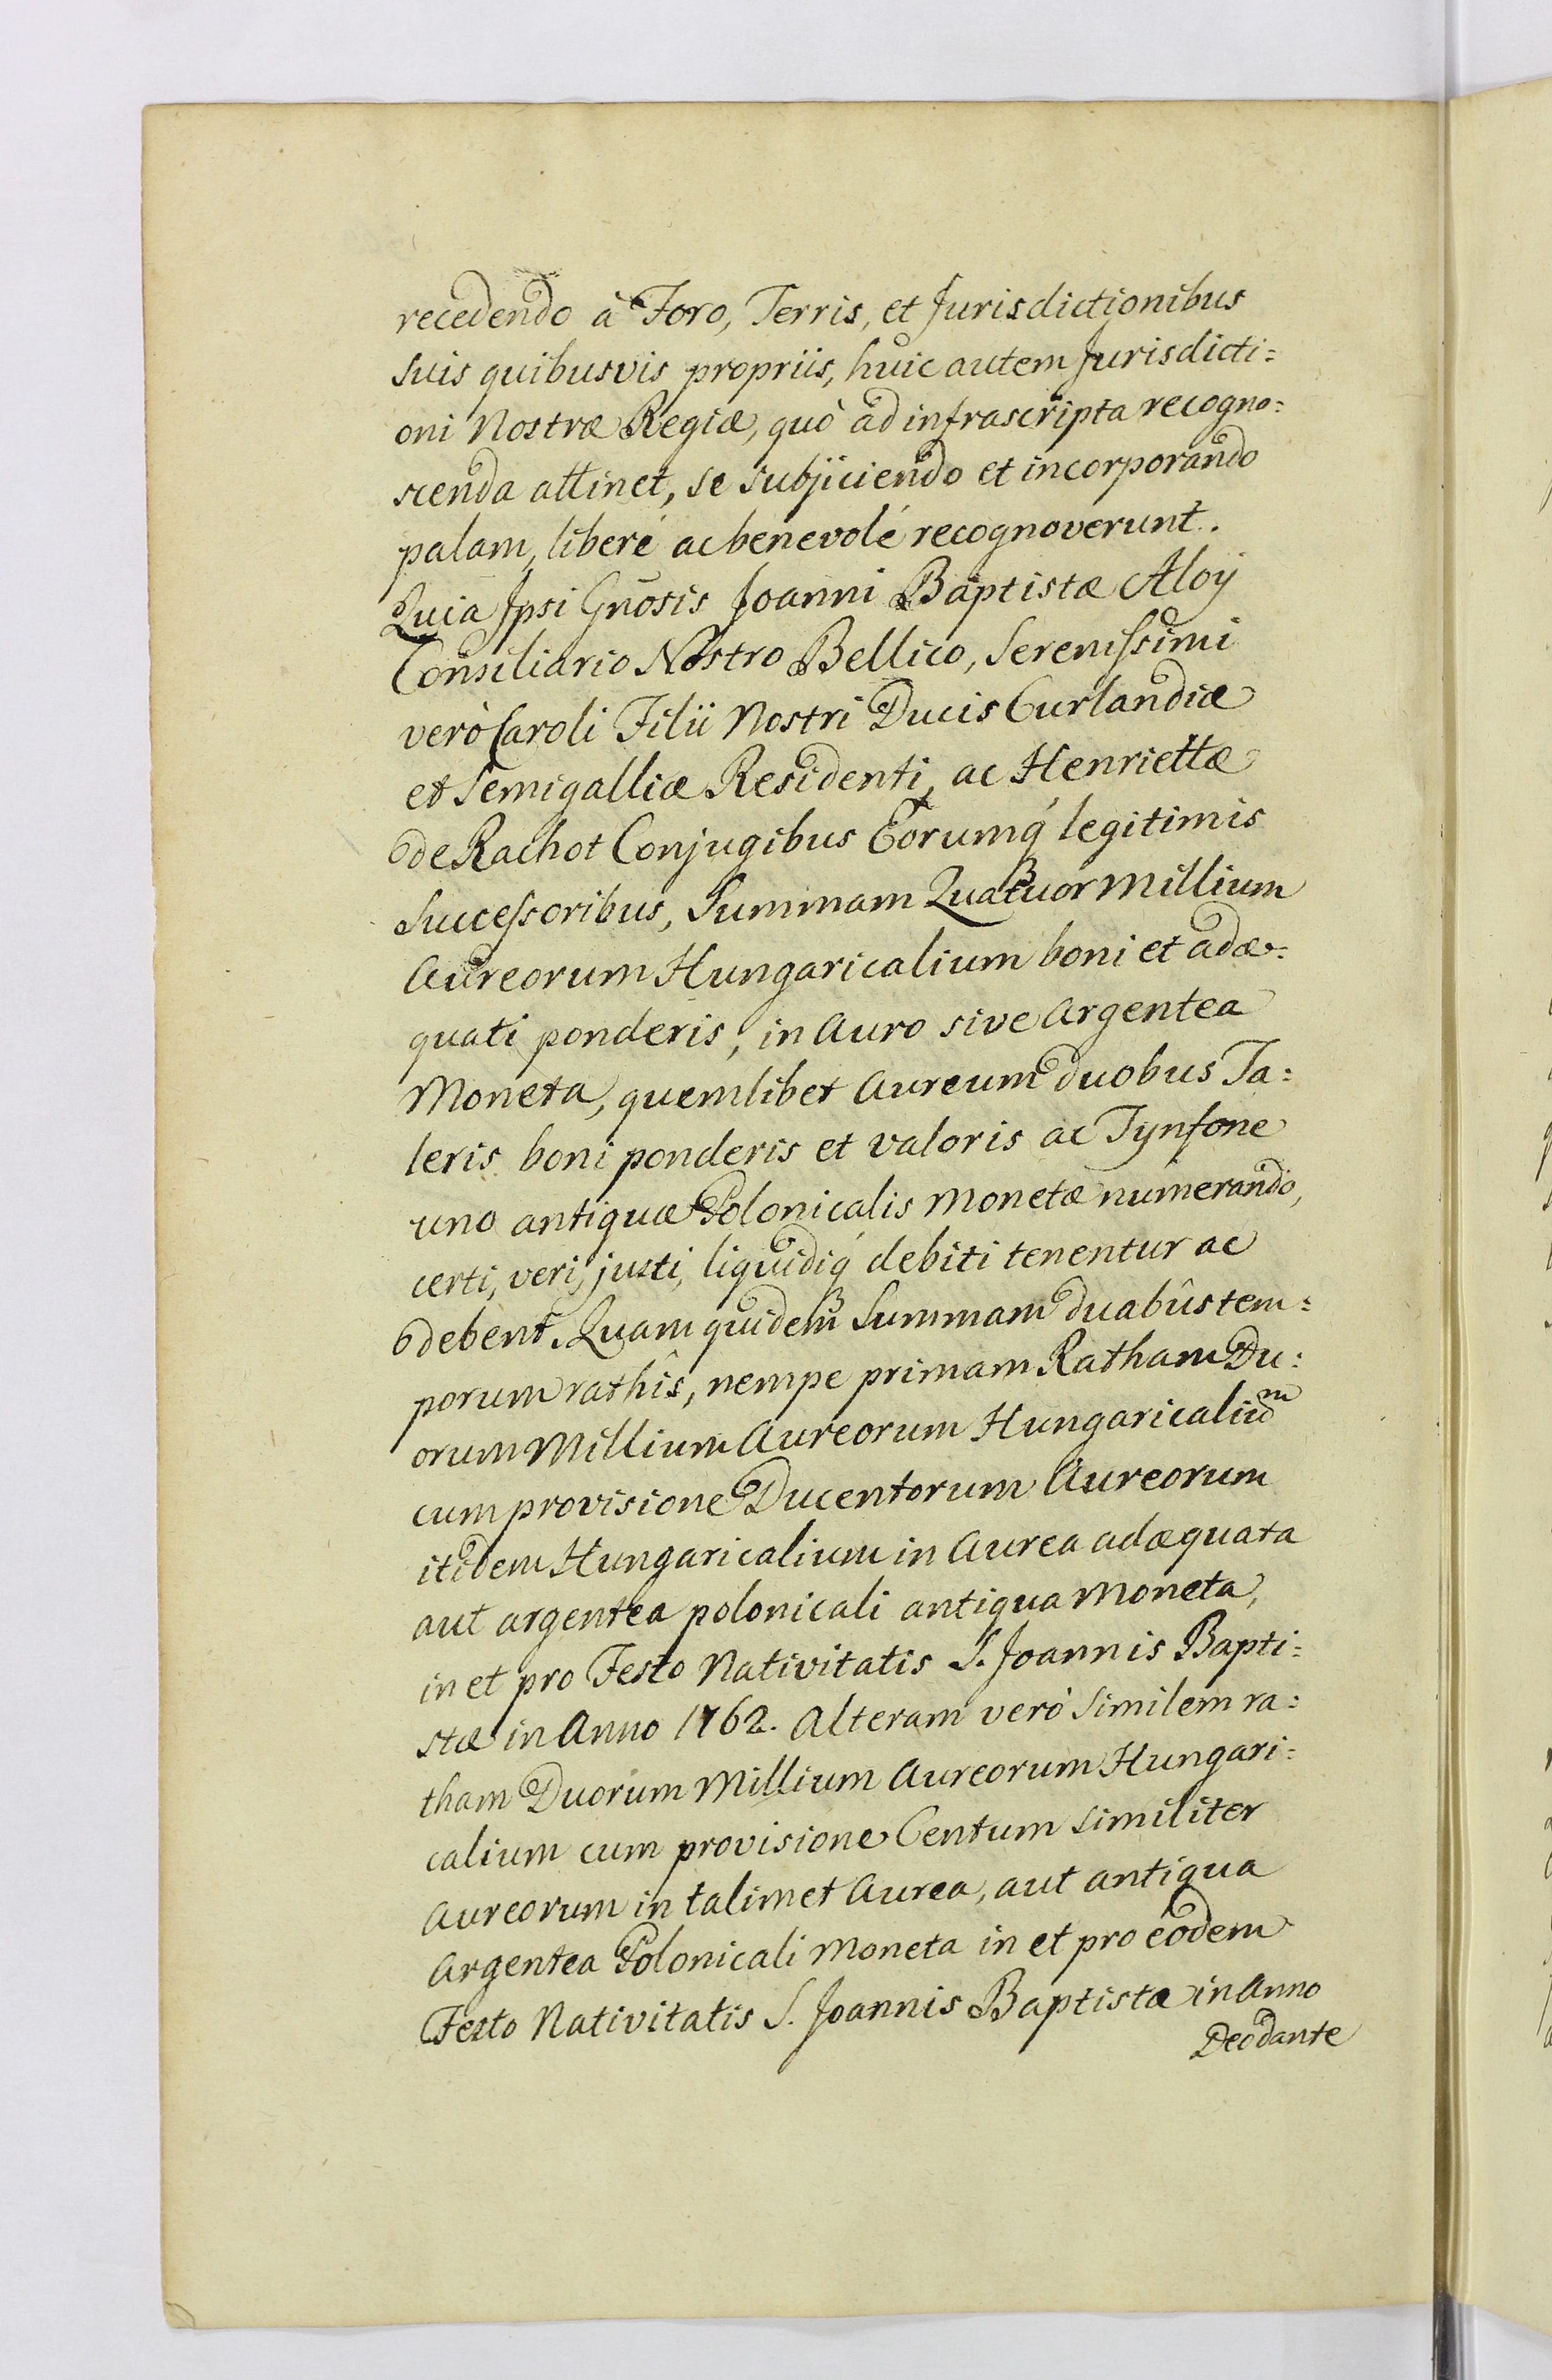 recedendo à Foro, Terris, et Jurisdictionibus
Suis quibusvis propriis, huic autem Jurisdicti=
oni Nostræ Regiæ, quò ad infrascripta recogno=
scenda attinet, se subjiciendo et incorporando
palam, liberé ac benevolé recognoverunt.
Quia Ipsi Gnosis Joanni Baptistæ Aloÿ
Consiliario Nostro Bellico, Serenissimi
verò Caroli Filii Nostri Ducis Curlandiæ
et Semigalliæ Residenti, ac Henriettæ
de Rachot Conjugibus Eorumq́ legitimis
Successoribus, Summam Quatuor Millium
Aureorum Hungaricalium boni et adæ=
quati ponderis, in Auro sive Argentea
Moneta, quemlibet Aureum duobus Ta=
leris boni ponderis et valoris ac Tynfone
uno antiquæ Polonicalis Monetæ numerando,
certi, veri, justi, liquidiq́ debiti tenentur ac
debent. Quam quidem Summam duabûs tem=
porum rathîs, nempe primam Ratham Du=
orum Millium Aureorum Hungaricaliũm
cum provisione Ducentorum Aureorum
itidem Hungaricalium in Aurea adæquata
aut argentea polonicali antiqua Moneta,
in et pro Festo Nativitatis S. Joannis Bapti=
stæ in Anno 1762. Alteram veró similem ra=
tham Duorum Millium Aureorum Hungari=
calium cum provisione Centum similiter
Aureorum in talimet Aurea, aut antiqua
Argentea Polonicali Moneta in et pro eodem
Festo Nativitatis S. Joannis Baptistæ in Anno
Deo dante